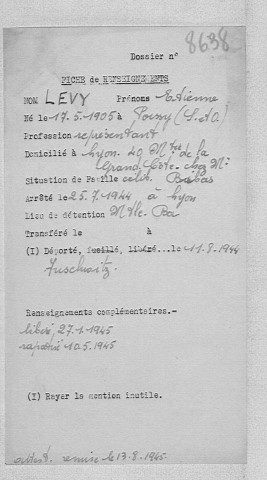 Dossier n° 8638
FICHE de RENSEIGNEMENTS
NOM LEVY Prénoms Etienne
Né le 17.5.1905 à Poissy (S.&O.)
Profession représentant
Domicilié à Lyon. 40 Mtée de la
Grand Côte. chez Mr
Situation de Famille célib. Babas
Arrêté le 25.7.1944 à Lyon
Lieu de détention Mtlc.
Transféré le à
(I) Déporté, fusillé, libéré...le 11.8.1944
Auschwitz.
Renseignements complémentaires.-
libéré 27.1.1945
rapatrié 10.5.1945
(I) Rayer la mention inutile.
remise le 13-8-1965-